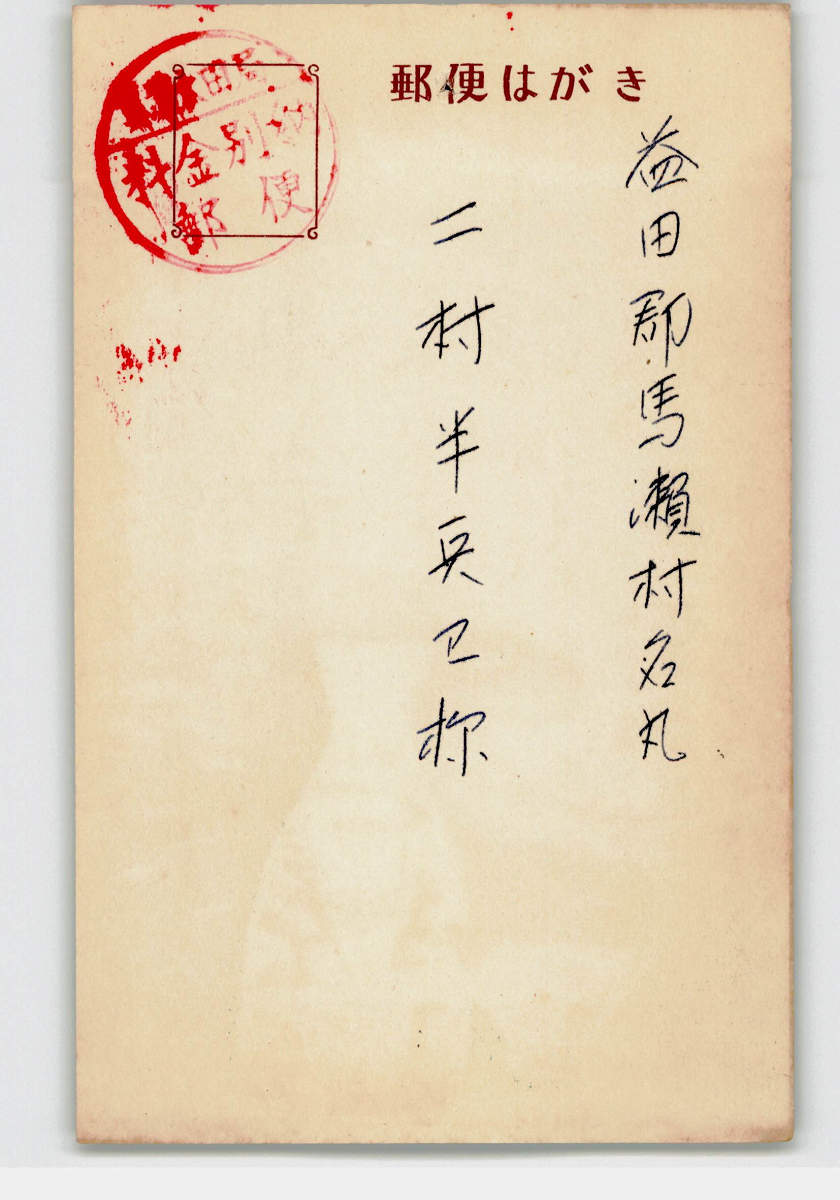 郵便はがき
益田郡馬瀬村名丸
二村半兵卫様
料金別納
郵便